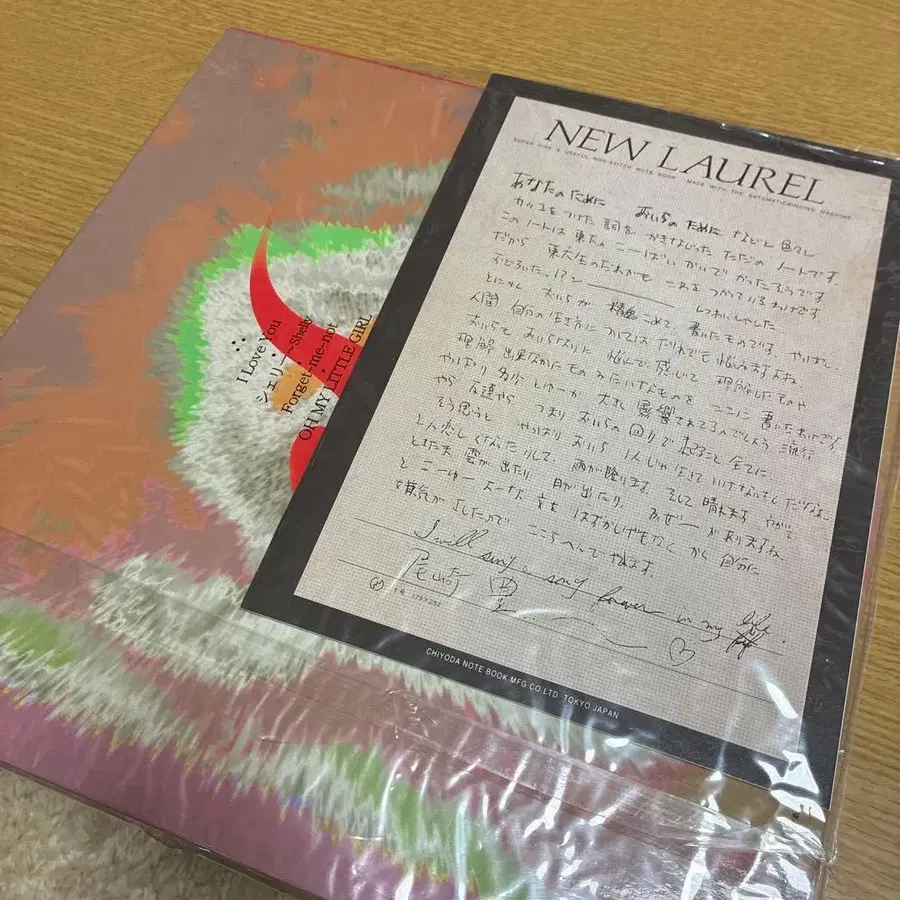 I Love You
シェリー〜Shelly
Forget-me-not
OH MY LITTLE GIRL
NEW LAUREL
SUPER FINE & USEFUL NON-STITCH NOTE BOOK MADE WITH THE AUTOMATICBINDING MACHINE
あなたのために おいらのために などと色々と
カッコをつけた詞を かきなじった ただの ノートです
このノートは東大の こーばい かいで かったそうです
だから 東大生のだれかも これを つかっているわけです
おどろいた。!?
とにかく おいらが 精魂こめて 書いたものです
人間 自分の生き方については だれでも悩みますよね
おいらも おいらなりに 悩んで 感じて 理解したものや
理解出来なかたもの みたいなものを ここに 書いた
やっぱり 大きく影響されてるんでしょう 流行
やら 友達やら つまり おいらの回りで起きること全てに
そう思うと やっぱり おいら 1人じゃ
と人恋しくなったりして、雨が降ります。そして 晴れます
また 雲が出たり 日が出たり、
と こーゆーよーな 文を はずかしげもなく かく自分に
嫌気がさしたので ここらへんで やめます。
I will sing a song forever in my life.
尾崎豊
6号 179×252
CHIYODA NOTE BOOK MFG CO.LTD. TOKYO JAPAN